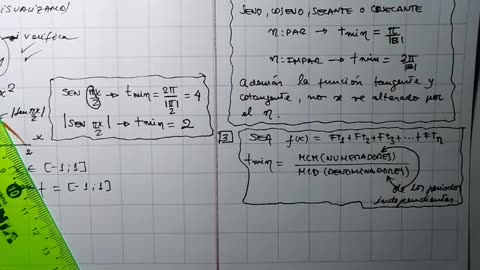 ¡SUALIZANDO!
si verifica
x²
|Sen πx/2|
x
2
x ∈ [-1;1]
f = [-1;1]
SEN πx/2 → tmin = 2π/|π/2| = 4
|SEN πx/2| → tmin = 2
SENO, COSENO, SECANTE O COSECANTE
n: PAR → tmin = π/|B|
n: IMPAR → tmin = 2π/|B|
Además la función tangente y
cotangente, no se ve alterado por
el n.
3 SEA f(x) = FT1 + FT2 + FT3 + ... + FTn
tmin = MCM (NUMERADORES)/MCD (DENOMINADORES)
de los periodos
independientes.